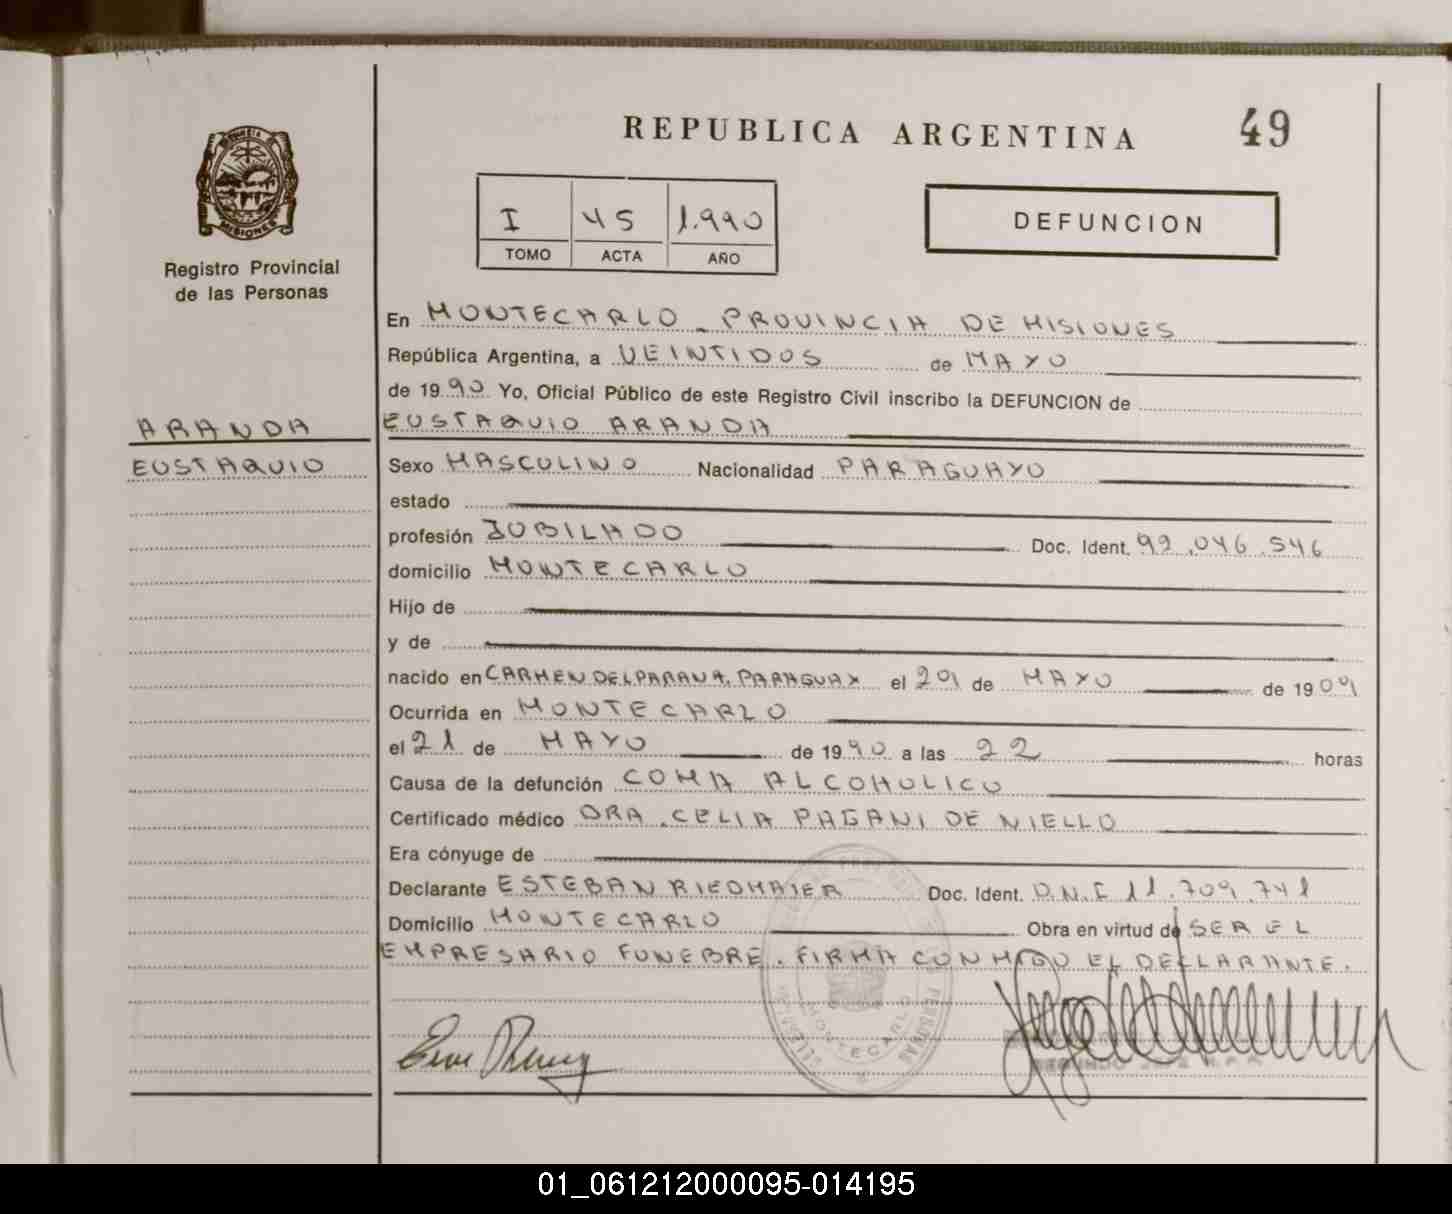 REPUBLICA ARGENTINA
49
MISIONES
Registro Provincial
de las Personas
I 45 1.990
TOMO ACTA AÑO
DEFUNCION
En MONTECARLO - PROVINCIA DE MISIONES
República Argentina, a VEINTIDOS de MAYO
de 1990 Yo, Oficial Público de este Registro Civil inscribo la DEFUNCION de
EUSTAQUIO ARANDA
ARANDA
EUSTAQUIO
Sexo MASCULINO Nacionalidad PARAGUAYO
estado
profesión JUBILADO Doc. Ident. 92.046.546
domicilio MONTECARLO
Hijo de
y de
nacido en CARMEN DEL PARANA, PARAGUAY el 20 de MAYO de 1909
Ocurrida en MONTECARLO
el 21 de MAYO de 1990 a las 22 horas
Causa de la defunción COMA ALCOHOLICO
Certificado médico DRA. CELIA PAGANI DE NIELLO
Era cónyuge de
Declarante ESTEBAN RIEDMAIER Doc. Ident. D.N.I 11.709.741
Domicilio MONTECARLO Obra en virtud de SER EL
EMPRESARIO FUNEBRE. FIRMA CONMIGO EL DECLARANTE.
MONTECARLO
01_061212000095-014195